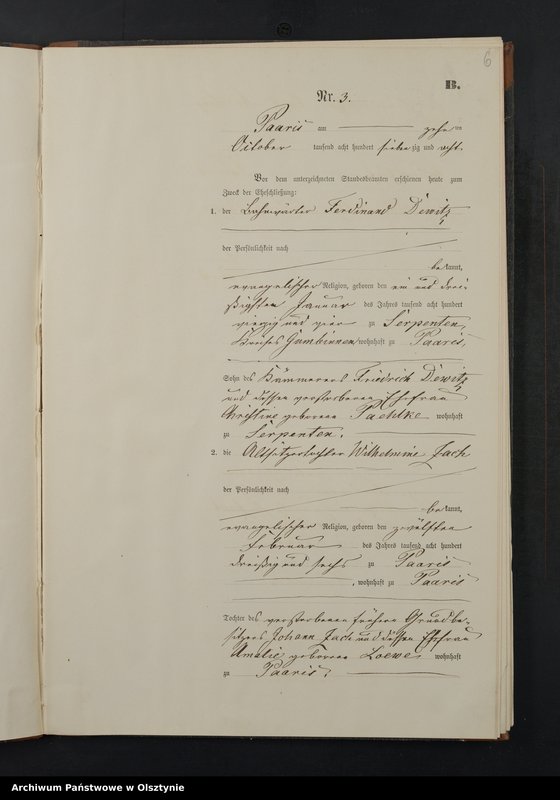 6
B.
Nr. 3.
Paaris am zehn ten
October tausend acht hundert sieben zig und acht.
Vor dem unterzeichneten Standesbeamten erschienen heute zum
Zweck der Eheschließung:
1. der Bahnwärter Ferdinand Dewitz
der Persönlichkeit nach
be kannt,
evangelischer Religion, geboren den ein und drei-
ßigsten Januar des Jahres tausend acht hundert
vierzig und vier zu Serpenten,
Kreises Gumbinnen, wohnhaft zu Paaris,
Sohn des Kämmerers Friedrich Dewitz
und dessen verstorbenen Ehefrau
Christine geborenen Paehlke wohnhaft
zu Serpenten.
2. die Altsitzertochter Wilhelmine Jach
der Persönlichkeit nach
be kannt,
evangelischer Religion, geboren den zwölften
Februar des Jahres tausend acht hundert
dreißig und sechs zu Paaris
, wohnhaft zu Paaris
Tochter des verstorbenen früheren Grundbe-
sitzers Johann Jach und dessen Ehefrau
Amalie geborenen Loewe wohnhaft
zu Paaris.
Archiwum Państwowe w Olsztynie